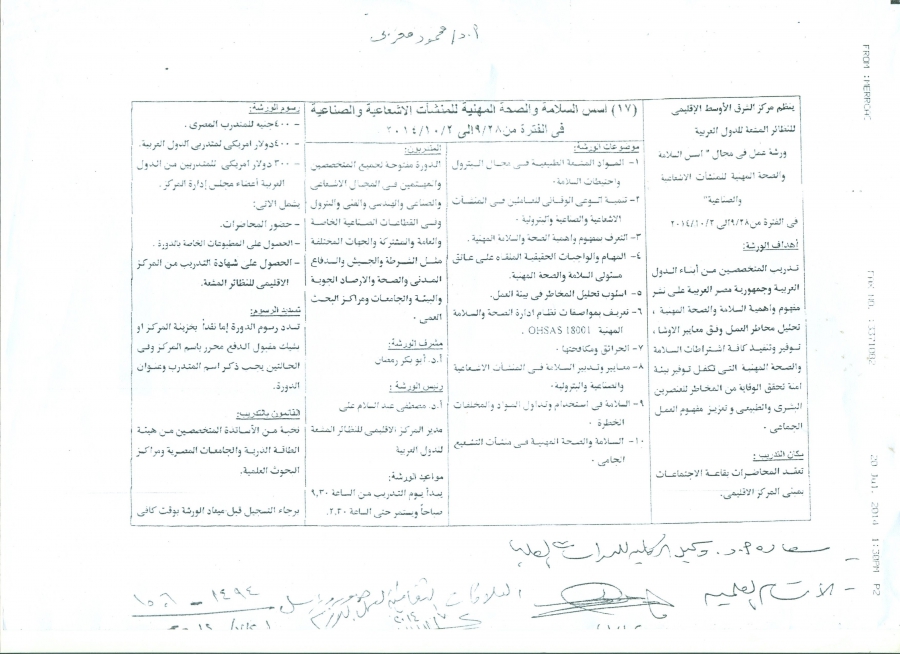 أ.د/ محمود مغربى
(١٧) اسس السلامة والصحة المهنية للمنشآت الاشعاعية والصناعية
فى الفترة من ٩/٢٨ إلى ٢٠١٤/١٠/٢
ينظم مركز الشرق الأوسط الإقليمى
للنظائر المشعة للدول العربية
ورشة عمل فى مجال " أسس السلامة
والصحة المهنية للمنشآت الاشعاعية
والصناعية"
فى الفترة من ٩/٢٨ إلى ٢٠١٤/١٠/٢
أهداف الورشة:
تدريب المتخصصين من أبناء الدول
العربية وجمهورية مصر العربية على نشر
مفهوم وأهمية السلامة والصحة المهنية ،
تحليل مخاطر العمل وفق معايير الاوشا ،
توفير وتنفيذ كافة اشتراطات السلامة
والصحة المهنية التى تكفل توفير بيئة
امنة تحقق الوقاية من المخاطر للعنصرين
البشرى والطبيعى و تعزيز مفهوم العمل
الجماعى .
مكان التدريب :
تعقد المحاضرات بقاعة الاجتماعات
بمبنى المركز الاقليمى.
موضوعات الورشة:
١- المواد المشعة الطبيعية فى مجال البترول
واحتياطات السلامة.
٢- تنمية الوعى الوقائى للعاملين فى المنشآت
الاشعاعية والصناعية والبترولية .
٣- التعرف بمفهوم واهمية الصحة والسلامة المهنية .
٤- المهام والواجبات الحقيقية الملقاه على عاتق
مسئولى السلامة والصحة المهنية.
٥- اسلوب تحليل المخاطر فى بيئة العمل.
٦- تعريف بمواصفات نظام ادارة الصحة والسلامة
المهنية OHSAS 18001 .
٧- الحرائق ومكافحتها .
٨- معايير وتدابير السلامة فى المنشآت الاشعاعية
والصناعية والبترولية.
٩- السلامة فى استخدام وتداول المواد والمخلفات
الخطرة .
١٠- السلامة والصحة المهنية فى منشآت التشعيع
الجامى .
المتدربون:
الدورة مفتوحة لجميع المتخصصين
والمهتمين فى المجال الاشعاعى
والصناعى والهندسى والفنى والبترول
وفى القطاعات الصناعية الخاصة
والعامة والمشتركة والجهات المختلفة
مثل الشرطة والجيش والدفاع
المدنى والصحة والارصاد الجوية
والبيئة والجامعات ومراكز البحث
العلمى .
مشرف الورشة:
أ.د. أبو بكر رمضان
رئيس الورشة :
أ.د. مصطفى عبد السلام على
مدير المركز الاقليمى للنظائر المشعة
للدول العربية
مواعيد الورشة:
يبدأ يوم التدريب من الساعة ٩.٣٠
صباحاً ويستمر حتى الساعة ٢.٣٠.
رسوم الورشة:
- ٤٠٠ جنيه للمتدرب المصرى .
- ٤٠٠ دولار امريكى لمتدربى الدول العربية.
- ٣٠٠ دولار امريكى للمتدربين من الدول
العربية أعضاء مجلس إدارة المركز.
يشمل الاتى:
- حضور المحاضرات.
- الحصول على المطبوعات الخاصة بالدورة .
- الحصول على شهادة التدريب من المركز
الاقليمى للنظائر المشعة.
تسديد الرسوم:
تسدد رسوم الدورة إما نقداً بخزينة المركز او
بشيك مقبول الدفع محرر باسم المركز وفى
الحالتين يجب ذكر اسم المتدرب وعنوان
الدورة.
القائمون بالتدريب:
نخبة من الأساتذة المتخصصين من هيئة
الطاقة الذرية والجامعات المصرية ومراكز
البحوث العلمية.
برجاء التسجيل قبل ميعاد الورشة بوقت كافى
- سعادة أ.د. وكيل الكلية للدراسات العليا
- الأقسام العلمية
FROM :MERRCAC
20 Jul. 2014 1:30PM P2